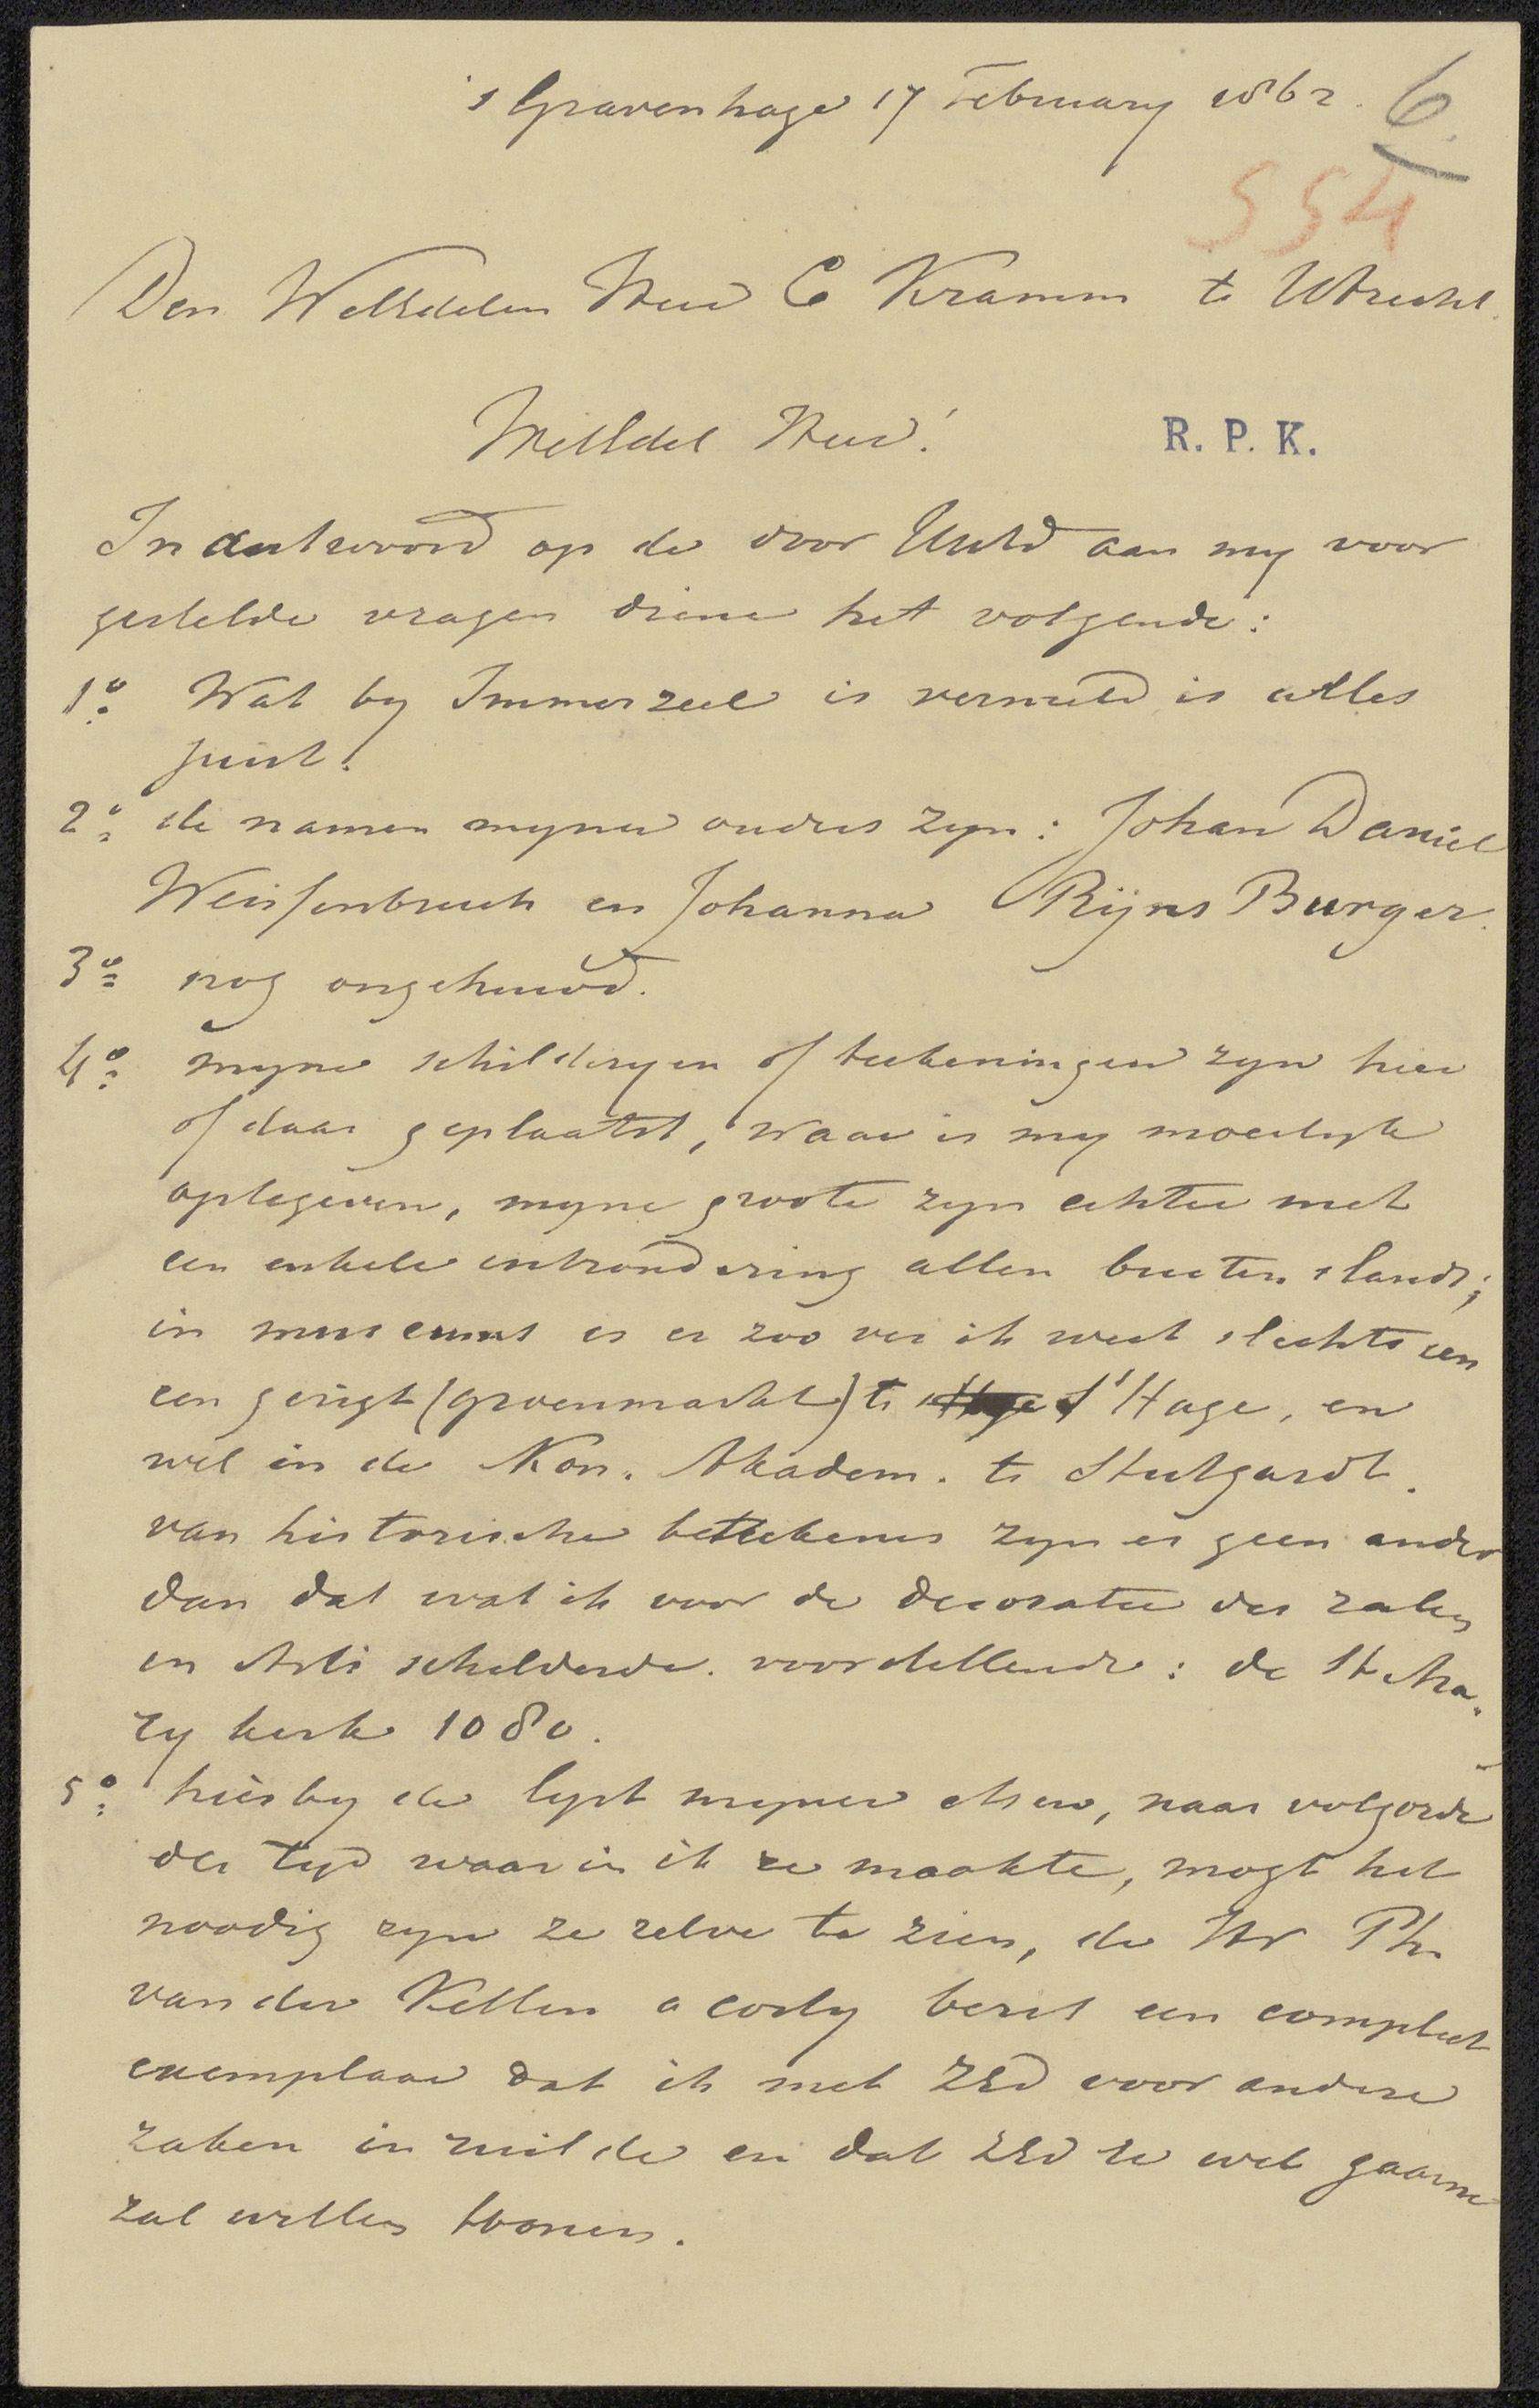 's Gravenhage 17 February 1862.
6.
554
Den WelEdelen Heer C Kramm te Utrecht.
WelEdel Heer!
R. P. K.
In antwoord op de door UwEd aan my voor
gestelde vragen diene het volgende:
1o. Wat by Immerzeel is vermeld is alles
juist.
2o. de namen myner ouders zyn: Johan Daniel
Weissenbruch en Johanna Rijns Burger.
3o nog ongehuwd.
4o. myne schilderyen of teekeningen zyn hier
of daar geplaatst, waar is my moeilyk
optegeven, myne groote zyn echter met
een enkele uitzondering allen buiten slands;
in museums is er zoo ver ik weet slechts een
een gezigt (groenmarkt) te s'Hage, en
wel in de Kon. Akadem. te Stutgardt.
van historische beteekenis zyn er geen ander
dan dat wat ik voor de decoratie der zalen
in Arti schilderde. voorstellende: de St Ma-
ry kerk 1080.
5o. hierby de lyst myner etsen, naar volgorde
der tyd waar in ik ze maakte, mogt het
noodig zyn ze zelve te zien, de Hr Ph
van der Kellen bezit een compleet
exemplaar dat ik met ZEd voor andere
zaken in ruilde en dat ZEd ze wel gaarne
zal willen toonen.